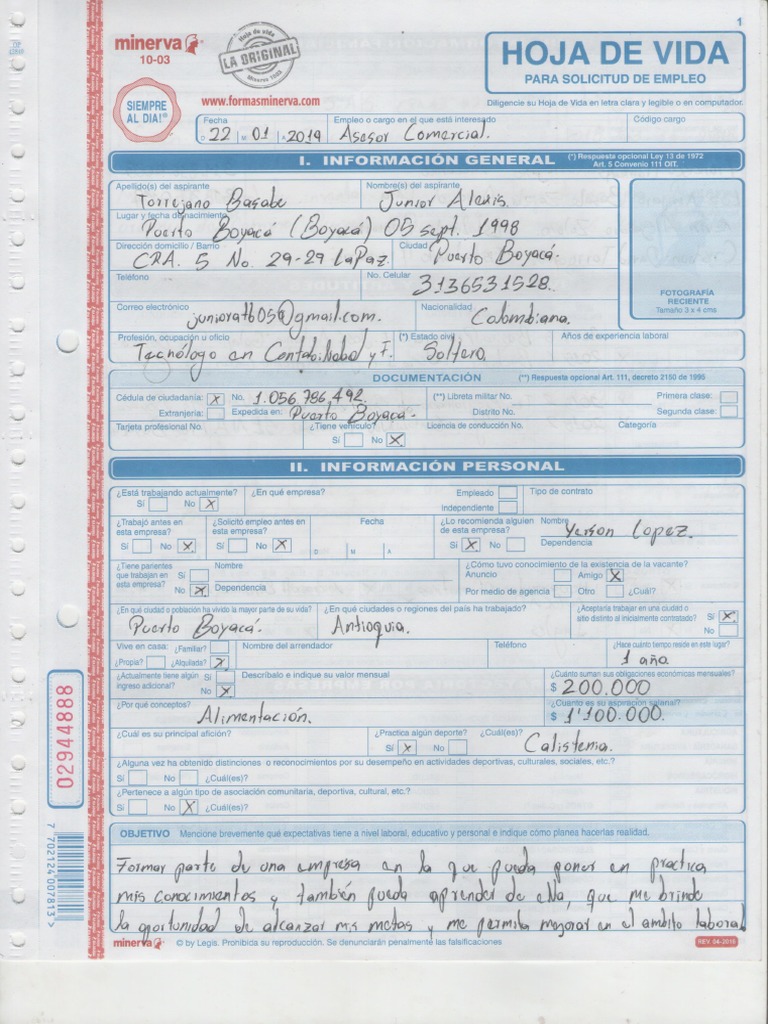 1
minerva
10-03
Hoja de vida
LA ORIGINAL
Minerva 1003
HOJA DE VIDA
PARA SOLICITUD DE EMPLEO
SIEMPRE AL DIA!
www.formasminerva.com
Diligencie su Hoja de Vida en letra clara y legible o en computador.
Fecha Empleo o cargo en el que está interesado Código cargo
D 22 M 01 A 2019 Asesor Comercial.
I. INFORMACIÓN GENERAL (*) Respuesta opcional Ley 13 de 1972 Art. 5 Convenio 111 OIT.
Apellido(s) del aspirante Nombre(s) del aspirante
Torrejano Basabe Junior Alexis.
Lugar y fecha de nacimiento
Puerto Boyacá (Boyacá) 05 sept. 1998
Dirección domicilio / Barrio Ciudad
CRA. 5 No. 29-29 La Paz. Puerto Boyacá.
Teléfono No. Celular
3136531528.
FOTOGRAFÍA RECIENTE
Tamaño 3 x 4 cms
Correo electrónico Nacionalidad
junioratb05@gmail.com. Colombiana.
Profesión, ocupación u oficio (*) Estado civil Años de experiencia laboral
Tecnólogo en Contabilidad y F. Soltero.
DOCUMENTACIÓN (**) Respuesta opcional Art. 111, decreto 2150 de 1995
Cédula de ciudadanía: x No. 1.056.786.492. (**) Libreta militar No. Primera clase:
Extranjería: Expedida en: Puerto Boyacá. Distrito No. Segunda clase:
Tarjeta profesional No. ¿Tiene vehículo? Licencia de conducción No. Categoría
Sí No x
II. INFORMACIÓN PERSONAL
¿Está trabajando actualmente? ¿En qué empresa? Empleado Tipo de contrato
Sí No x Independiente
¿Trabajó antes en esta empresa? ¿Solicitó empleo antes en esta empresa? Fecha ¿Lo recomienda alguien de esta empresa? Nombre Yerson Lopez.
Sí No x Sí No x D M A Sí x No Dependencia
¿Tiene parientes que trabajan en esta empresa? Sí No x Nombre ¿Cómo tuvo conocimiento de la existencia de la vacante?
Anuncio Amigo x
Dependencia Por medio de agencia Otro ¿Cuál?
¿En qué ciudad o población ha vivido la mayor parte de su vida? ¿En qué ciudades o regiones del país ha trabajado? ¿Aceptaría trabajar en una ciudad o sitio distinto al inicialmente contratado? Sí x No
Puerto Boyacá. Antioquia.
Vive en casa: ¿Familiar? Nombre del arrendador Teléfono ¿Hace cuánto tiempo reside en este lugar?
¿Propia? ¿Alquilada? x 1 año
¿Actualmente tiene algún ingreso adicional? Sí No x Descríbalo e indique su valor mensual ¿Cuánto suman sus obligaciones económicas mensuales?
$ 200.000
¿Por qué conceptos? ¿Cuánto es su aspiración salarial?
Alimentación. $ 1'100.000.
¿Cuál es su principal afición? ¿Practica algún deporte? ¿Cuál(es)?
Sí x No Calistenia.
¿Alguna vez ha obtenido distinciones o reconocimientos por su desempeño en actividades deportivas, culturales, sociales, etc.?
Sí No ¿Cuál(es)?
¿Pertenece a algún tipo de asociación comunitaria, deportiva, cultural, etc.?
Sí No x ¿Cuál(es)?
OBJETIVO Mencione brevemente qué expectativas tiene a nivel laboral, educativo y personal e indique cómo planea hacerlas realidad.
Formar parte de una empresa en la que pueda poner en practica
mis conocimientos y también pueda aprender de ella, que me brinde
la oportunidad de alcanzar mis metas y me permita mejorar en el ambito laboral
minerva © by Legis. Prohibida su reproducción. Se denunciarán penalmente las falsificaciones REV. 04-2016
02944888
7 702124 007813 >